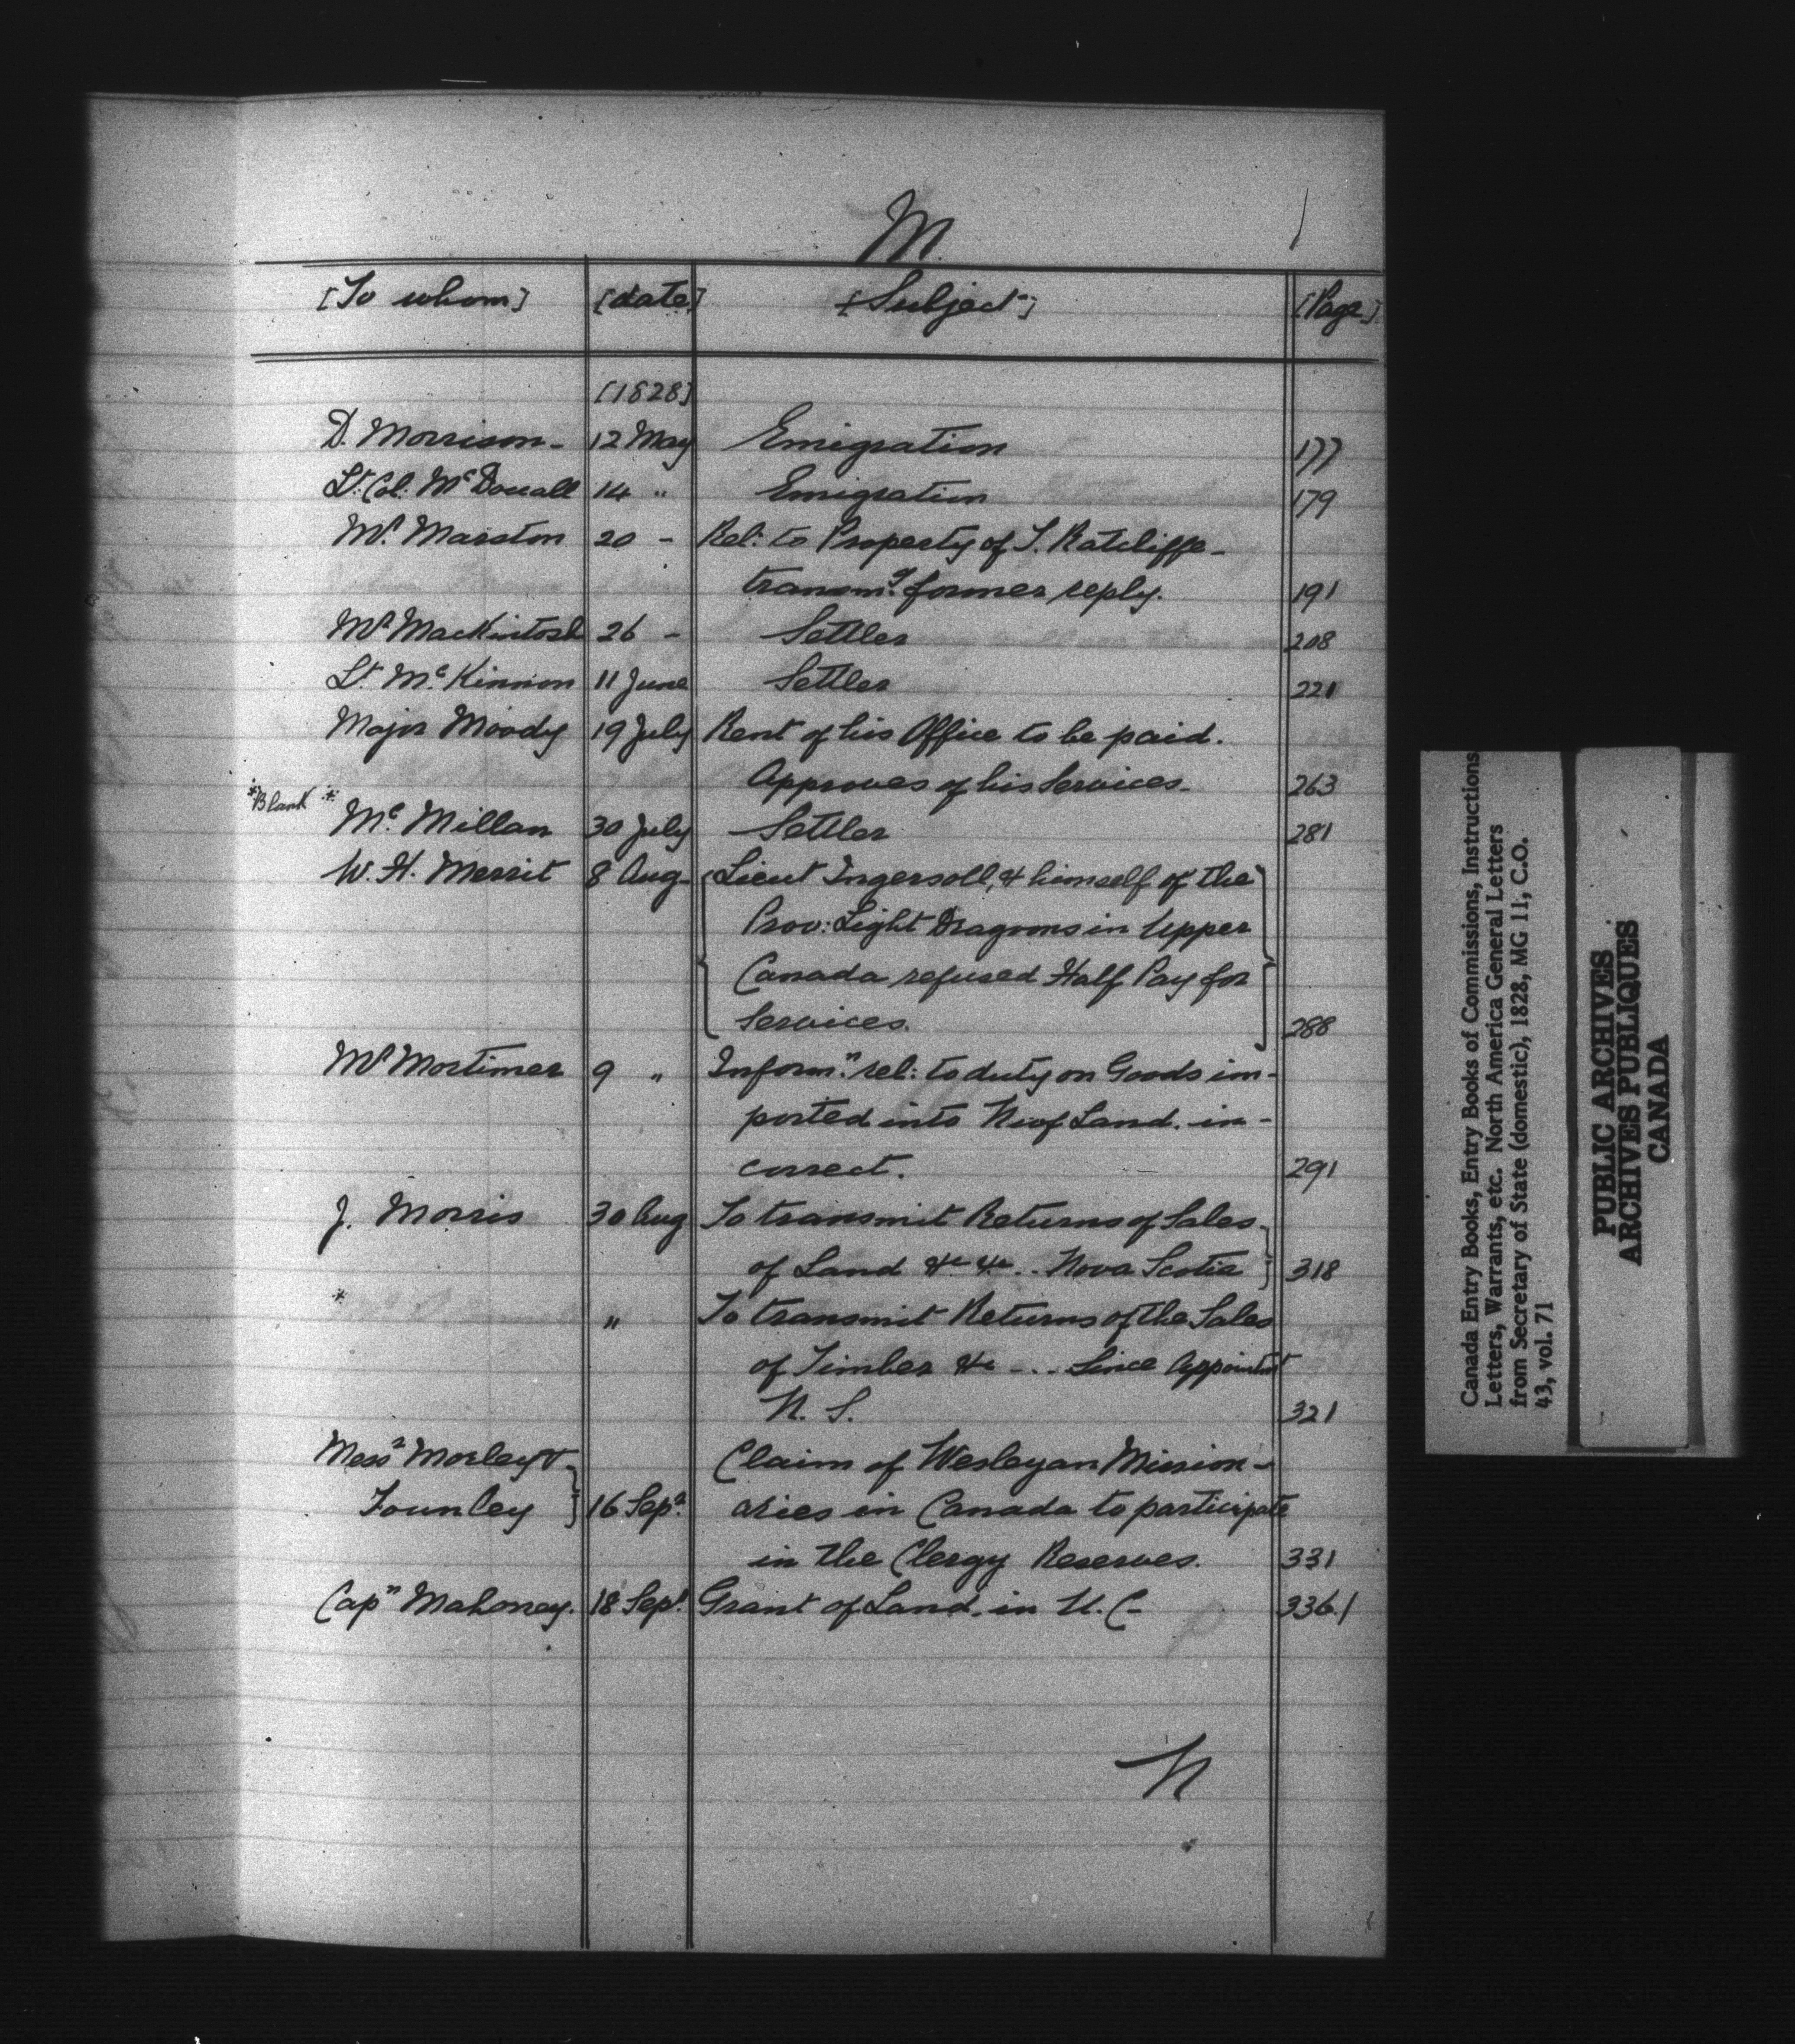 M.
[To whom] [date] [Subject] [Page]
[1828]
D. Morrison - 12 May Emigration 177
Lt. Col: McDouall 14 " Emigration 179
Mr. Marston 20 - Rel: to Property of T. Ratcliffe -
transmg. former reply. 191
Mr Mackintosh 26 - Settler 208
Lt. Mc.Kinnon 11 June Settler 221
Major Moody 19 July Rent of his Office to be paid.
Approves of his Services. 263
*Blank * Mc. Millan 30 July Settler 281
W. H. Merrit 8 Aug. Lieut Ingersoll, & himself of the
Prov: Light Dragoons in Upper
Canada refused Half Pay for
Services. 288
Mr Mortimer 9 " Informn. rel: to duty on Goods im-
ported into Newf Land. in-
correct. 291
J. Morris 30 Aug To transmit Returns of Sales
of Land &c &c .. Nova Scotia 318
* " To transmit Returns of the Sales
of Timber &c - .. Since Appointmt
N. S. 321
Messrs Morley & Claim of Wesleyan Mission-
Townley 16 Sepr. aries in Canada to participate
in the Clergy Reserves. 331
Capn Mahoney. 18 Sept. Grant of Land. in U. C- 336
N
Canada Entry Books, Entry Books of Commissions, Instructions
Letters, Warrants, etc. North America General Letters
from Secretary of State (domestic), 1828, MG 11, C.O.
43, vol. 71
PUBLIC ARCHIVES
ARCHIVES PUBLIQUES
CANADA